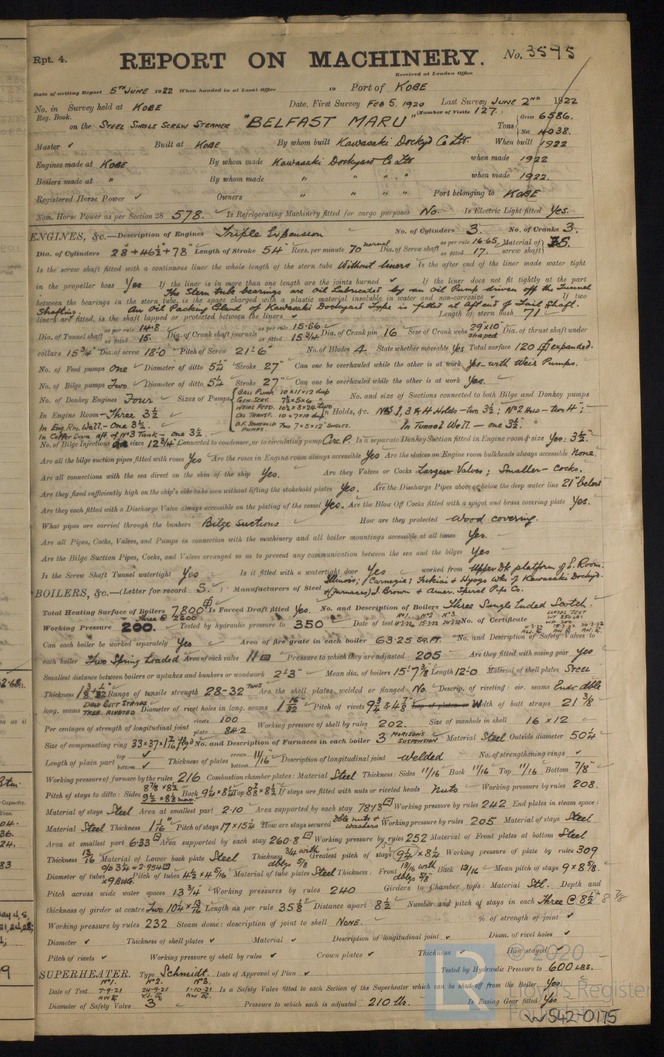 Rpt. 4.
REPORT ON MACHINERY.
No. 3595
Received at London Office
Date of writing Report 5TH JUNE 1922 When handed in at Local Office 19 Port of KOBE
No. in Survey held at KOBE Date, First Survey FEB 5. 1920 Last Survey JUNE 2ND 1922
Reg. Book. (Number of Visits 127)
on the STEEL SINGLE SCREW STEAMER "BELFAST MARU" Tons Gross 6586. Net 4038.
Master ✓ Built at KOBE By whom built Kawasaki Dockyd Co Ltd. When built 1922
Engines made at KOBE By whom made Kawasaki Dockyard Co Ltd when made 1922
Boilers made at " By whom made " " " when made 1922.
Registered Horse Power ✓ Owners " " " Port belonging to KOBE
Nom. Horse Power as per Section 28 578. Is Refrigerating Machinery fitted for cargo purposes No. Is Electric Light fitted Yes.
ENGINES, &c.—Description of Engines Triple Expansion No. of Cylinders 3. No. of Cranks 3.
Dia. of Cylinders 28" + 46½" + 78" Length of Stroke 54" Revs. per minute 70 normal Dia. of Screw shaft as per rule 16.65 as fitted 17. Material of screw shaft S.
Is the screw shaft fitted with a continuous liner the whole length of the stern tube Without liners Is the after end of the liner made water tight
in the propeller boss Yes If the liner is in more than one length are the joints burned ✓ If the liner does not fit tightly at the part
The Stern Tube bearings are Oil Lubricated by an Oil Pump driven off the Tunnel
between the bearings in the stern tube, is the space charged with a plastic material insoluble in water and non-corrosive If two
Shafting. An Oil Packing Gland of Kawasaki Dockyard Type is fitted at aft end of Tail Shaft.
liners are fitted, is the shaft lapped or protected between the liners Length of stern bush 71"
Dia. of Tunnel shaft as per rule 14.8 as fitted 15. Dia. of Crank shaft journals as per rule 15.56 as fitted 15¾ Dia. of Crank pin 16 Size of Crank webs 29 x 10 shaped Dia. of thrust shaft under
collars 15¾" Dia. of screw 18'.0" Pitch of Screw 21'.6" No. of Blades 4. State whether moveable Yes Total surface 120 expanded.
No. of Feed pumps One Diameter of ditto 5¼" Stroke 27" Can one be overhauled while the other is at work Yes with Weir Pumps.
No. of Bilge pumps Two Diameter of ditto 5¼ Stroke 27" Can one be overhauled while the other is at work Yes.
No. of Donkey Engines Four Sizes of Pumps No. and size of Suctions connected to both Bilge and Donkey pumps
In Engine Room Three 3½ In Holds, &c. Nos 1, 3 & 4 Holds - two 3½"; No 2 Hold - two 4";
In Eng. Rm. Well - One 3½. In Tunnel Well - one 3½.
In Coffer Dam aft of No 3 Tank - one 3½.
No. of Bilge Injections One sizes 12¾" Connected to condenser, or to circulating pump Circ P. Is a separate Donkey Suction fitted in Engine room & size Yes. 3½.
Are all the bilge suction pipes fitted with roses Yes Are the roses in Engine room always accessible Yes Are the sluices on Engine room bulkheads always accessible None.
Are all connections with the sea direct on the skin of the ship Yes. Are they Valves or Cocks Larger Valves; Smaller cocks.
Are they fixed sufficiently high on the ship's side to be seen without lifting the stokehold plates Yes. Are the Discharge Pipes above or below the deep water line 21" below
Are they each fitted with a Discharge Valve always accessible on the plating of the vessel Yes. Are the Blow Off Cocks fitted with a spigot and brass covering plate Yes.
What pipes are carried through the bunkers Bilge Suctions How are they protected Wood covering.
Are all Pipes, Cocks, Valves, and Pumps in connection with the machinery and all boiler mountings accessible at all times Yes.
Are the Bilge Suction Pipes, Cocks, and Valves arranged so as to prevent any communication between the sea and the bilges Yes
Is the Screw Shaft Tunnel watertight Yes Is it fitted with a watertight door Yes worked from Upper Dk platform of E. Room.
BOILERS, &c.—(Letter for record S.) Manufacturers of Steel Illinois; Carnegie; Fukiai & Hyogo Wks of Kawasaki Dockyd.
(Furnaces) J. Brown & Amer. Spiral Pipe Co.
Total Heating Surface of Boilers 7800 Is Forced Draft fitted Yes. No. and Description of Boilers Three Single Ended Scotch.
Working Pressure 200. Tested by hydraulic pressure to 350 Date of test No. of Certificate
Can each boiler be worked separately Yes Area of fire grate in each boiler 63.25 sq. ft No. and Description of Safety Valves to
each boiler Two Spring Loaded Area of each valve 11 Pressure to which they are adjusted 205 Are they fitted with easing gear Yes
Smallest distance between boilers or uptakes and bunkers or woodwork 2'-3" Mean dia. of boilers 15'-7⅜ Length 12'-0 Material of shell plates Steel
Range of tensile strength 28-32 tons Are the shell plates welded or flanged No. Descrip. of riveting: cir. seams End dble
long. seams Dble Butt Straps Treb. Riveted Diameter of rivet holes in long. seams Pitch of rivets Width of butt straps 21⅞
Per centages of strength of longitudinal joint rivets 100 plate 84.2 Working pressure of shell by rules 202. Size of manhole in shell 16 x 12
Size of compensating ring No. and Description of Furnaces in each boiler 3 Morison's Suspension Material Steel Outside diameter 50¼
Length of plain part top ✓ bottom ✓ Thickness of plates crown 11/16 bottom Description of longitudinal joint Welded No. of strengthening rings ✓
Working pressure of furnace by the rules 216 Combustion chamber plates: Material Steel Thickness: Sides 11/16 Back 11/16 Top 11/16 Bottom 7/8"
Pitch of stays to ditto: Sides Back Top If stays are fitted with nuts or riveted heads Nuts Working pressure by rules 208.
Material of stays Steel Area at smallest part 2.10 Area supported by each stay 78.13 Working pressure by rules 242 End plates in steam space:
Material Steel Thickness 1 1/16" Pitch of stays 17 x 15¼ How are stays secured Dble nuts & washers Working pressure by rules 205 Material of stays Steel
Area at smallest part 6.33 Area supported by each stay 260.8 Working pressure by rules 252 Material of Front plates at bottom Steel
Thickness 13/16 Material of Lower back plate Steel Thickness Greatest pitch of stays Working pressure of plate by rules 309
Diameter of tubes Pitch of tubes 4½ x 4⅝ Material of tube plates Steel Thickness: Front Back 13/16 Mean pitch of stays 9 x 8⅝.
Pitch across wide water spaces 13¾" Working pressures by rules 240 Girders to Chamber tops: Material Stl. Depth and
thickness of girder at centre Length as per rule 35⅝ Distance apart 8½ Number and pitch of stays in each Three @ 8½
Working pressure by rules 232 Steam dome: description of joint to shell None. % of strength of joint ✓
Diameter ✓ Thickness of shell plates ✓ Material ✓ Description of longitudinal joint ✓ Diam. of rivet holes ✓
Pitch of rivets ✓ Working pressure of shell by rules ✓ Crown plates ✓ Thickness ✓ How stayed ✓
SUPERHEATER. Type Schmidt. Date of Approval of Plan ✓ Tested by Hydraulic Pressure to 600 LBS.
Date of Test Is a Safety Valve fitted to each Section of the Superheater which can be shut off from the Boiler Yes.
Diameter of Safety Valve 3" Pressure to which each is adjusted 210 lbs. Is Easing Gear fitted Yes
© 2020
Lloyd's Register
W542-0175